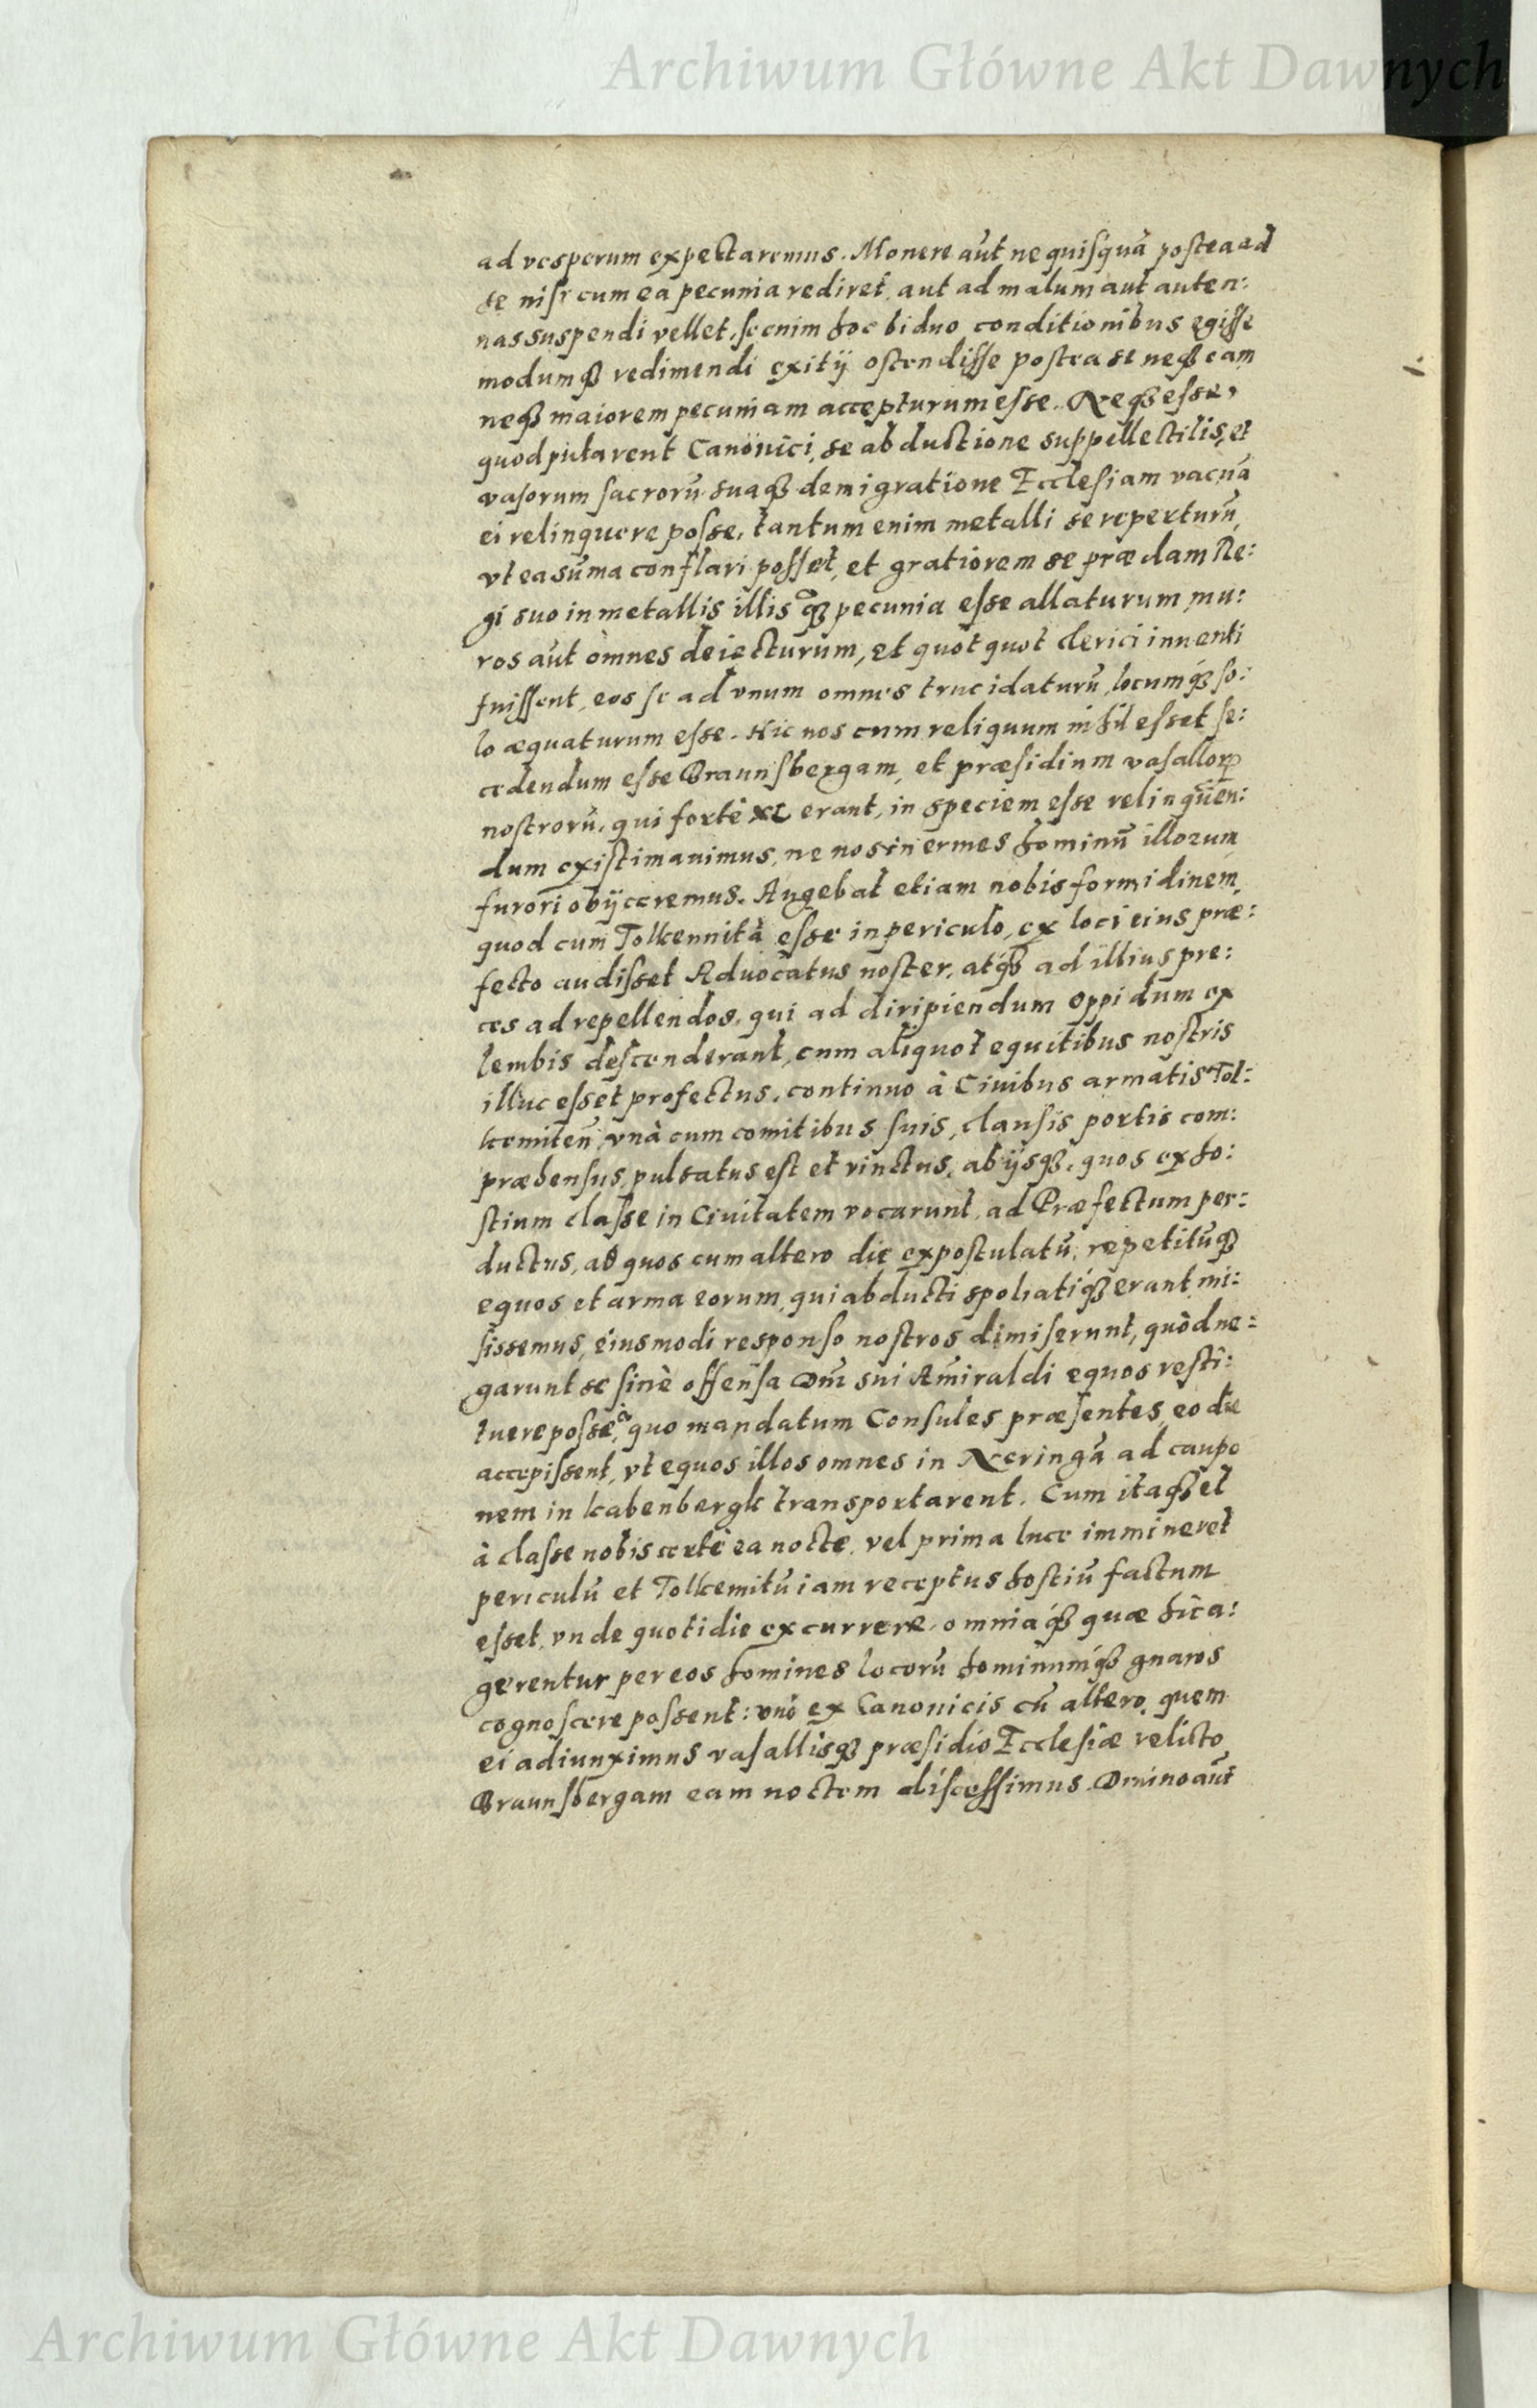 Archiwum Główne Akt Dawnych
ad vesperum expectaremus. Monere aūt ne quisquā postea ad
se nisi cum ea pecunia rediret, aut ad malum aut anten:
nas suspendi vellet, se enim hoc biduo conditionibus egisse
modumq́ꝫ redimendi exitij ostendisse postea se neqꝫ eam
neqꝫ maiorem pecuniam accepturum esse. Neqꝫ esse,
quod putarent Canonici, se abductione suppellectilis, et
vasorum sacrorū suaqꝫ demigratione Ecclesiam vacuā
ei relinquere posse, tantum enim metalli se reperturū,
vt ea sūma conflari posset, et gratiorem se prædam Re:
gi suo in metallis illis q̃ꝫ pecunia esse allaturum, mu:
ros aūt omnes deiecturum, et quot quot clerici inuenti
fuissent, eos se ad vnum omnes trucidaturū, locumq́ꝫ so:
lo æquaturum esse. Hic nos cum reliquum nihil esset se:
cedendum esse Braunsbergam, et præsidium vasallorꝝ
nostrorū, qui fortè XL erant, in speciem esse relinquen:
dum existimauimus, ne nos inermes hominū illorum
furori obijceremus. Augebat etiam nobis formidinem,
quod cum Tolkennitā esse in periculo, ex loci eius præ:
fecto audisset Aduocatus noster, atq́ꝫ ad illius pre:
ces ad repellendos, qui ad diripiendum oppidum ex
lembis descenderant, cum aliquot equitibus nostris
illuc esset profectus, continuo à Ciuibus armatis Tol:
kemiteñ, vnà cum comitibus suis, clausis portis com:
præhensus, pulsatus est et vinctus, ab ijsqꝫ, quos ex ho:
stium classe in Ciuitatem vocarunt, ad Præfectum per:
ductus, ad quos cum altero die expostulatū, repetitūqꝫ
equos et arma eorum, qui abducti spoliatiq́ꝫ erant mi:
sissemus, eiusmodi responso nostros dimiserunt, quòd ne:
garunt se sinè offensa Dñi sui Amiraldi equos resti:
tuere posse, à quo mandatum Consules præsentes, eo die
accepissent, vt equos illos omnes in Neringā ad caupo
nem in kabenbergk transportarent. Cum itaqꝫ et
à classe nobis certè ea nocte, vel prima luce immineret
periculū et Tolkemitū iam receptus hostiū factum
esset, vnde quotidie excurrere, omniaq́ꝫ quæ hic a:
gerentur per eos homines locorū hominumq́ꝫ gnaros
cognoscere possent: vno ex Canonicis cū altero, quem
ei adiunximus vasallisqꝫ præsidio Ecclesiæ relicto
Braunsbergam eam noctem discessimus. Dmino aūt
Archiwum Główne Akt Dawnych